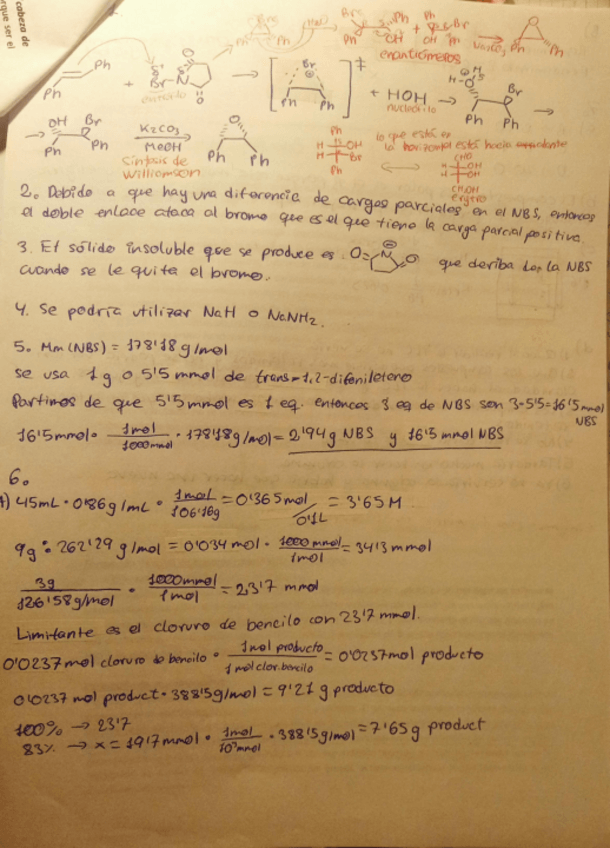 cabeza de
rque ser el
Ph Ph + Br N O O → Br Ph Ph + HOH → Br Ph Ph →
enantiómeros
nucleófilo
→ OH Br Ph Ph K2CO3 MeOH O Ph Ph
Síntesis de
Williamson
lo que está en
la horizontal está hacia adelante
Ph H OH H Br Ph
CHO OH OH CH2OH
2. Debido a que hay una diferencia de cargas parciales en el NBS, entonces
el doble enlace ataca al bromo que es el que tiene la carga parcial positiva.
3. El sólido insoluble que se produce es O= N ⊖ O que deriba de la NBS
cuando se le quita el bromo.
4. Se podría utilizar NaH o NaNH2.
5. Mm (NBS) = 178'18 g/mol
se usa 1g o 5'5 mmol de trans-1,2-difenileteno
Partimos de que 5'5 mmol es 1 eq. entonces 3 eq de NBS son 3·5'5=16'5 mmol
NBS
16'5mmol · 1mol/1000mmol · 178'18g/mol = 2'94 g NBS y 16'5 mmol NBS
6.
45mL · 0'86g/mL · 1mol/106'16g = 0'365mol/0'1L = 3'65 M
9g : 262'29 g/mol = 0'034 mol · 1000 mmol/1mol = 34'3 mmol
3g/126'58g/mol · 1000mmol/1mol = 23'7 mmol
Limitante es el cloruro de bencilo con 23'7 mmol.
0'0237mol cloruro de bencilo · 1mol producto/1 mol clor. bencilo = 0'0237mol producto
0'0237 mol product · 388'5g/mol = 9'21 g producto
100% → 23'7
83% → x = 19'7 mmol · 1mol/10³mmol · 388'5g/mol = 7'65 g product